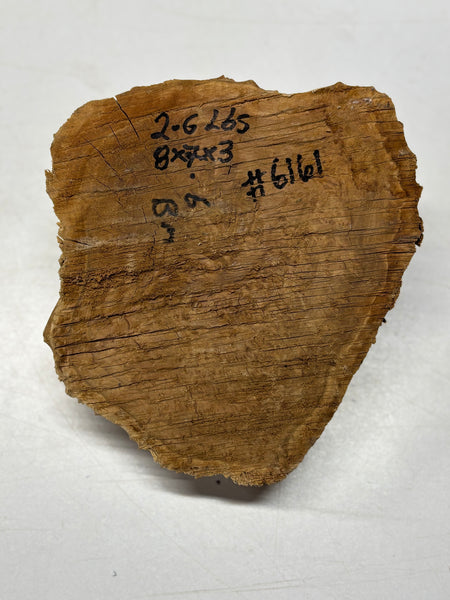 2-6 Lbs
8x7x3
#6161